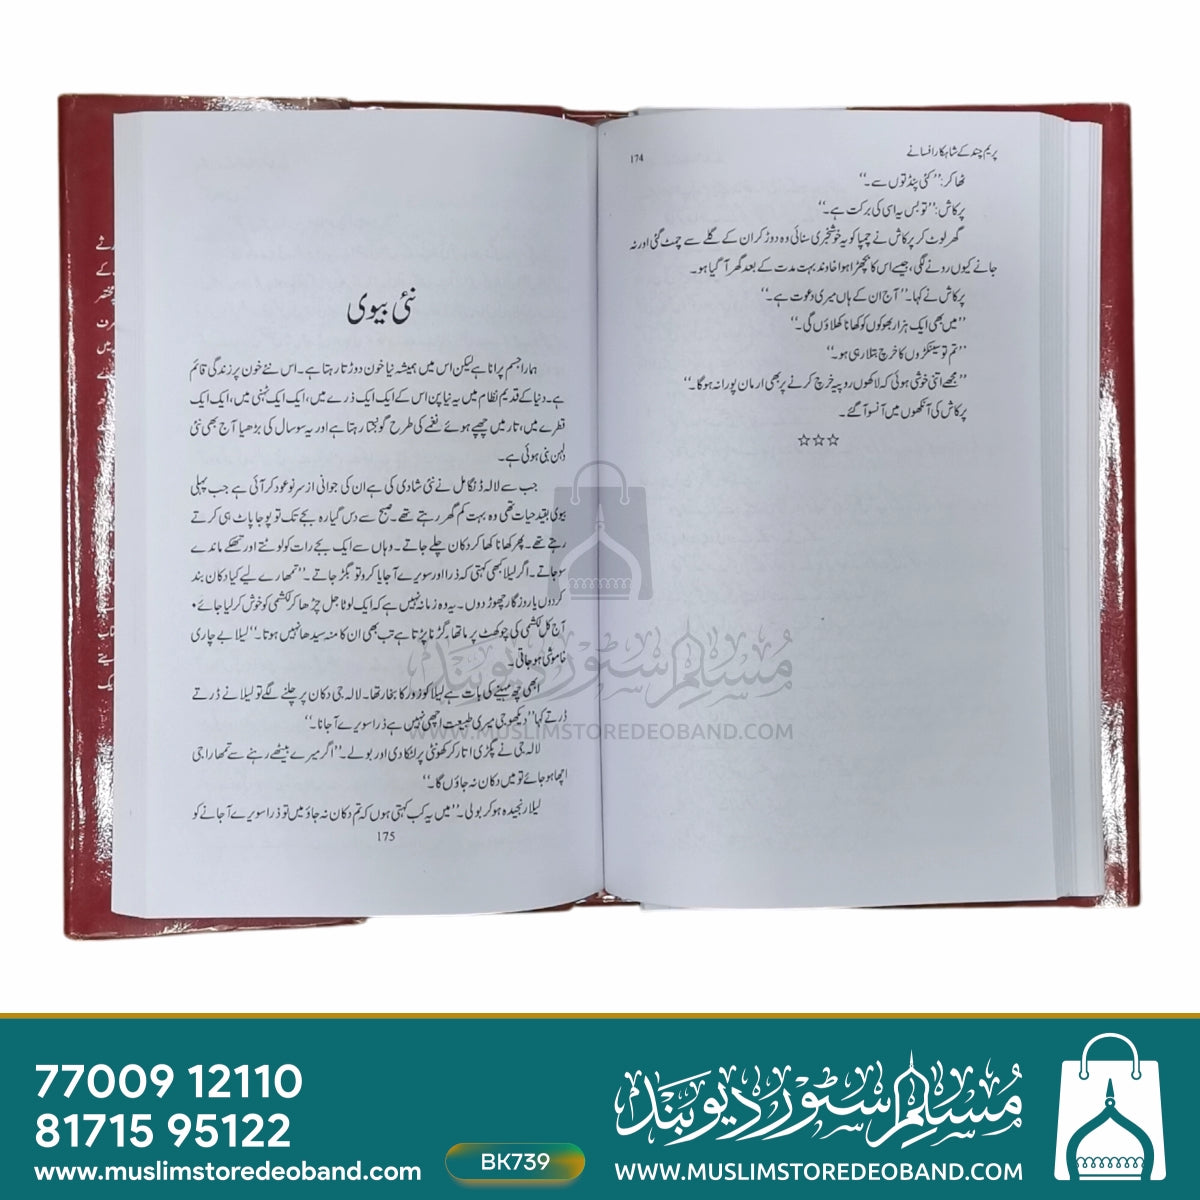 پریم چند کے شاہکار افسانے
174
ٹھاکر: ’’کئی پنڈتوں سے۔‘‘
پرکاش: ’’تو بس یہ اسی کی برکت ہے۔‘‘
گھر لوٹ کر پرکاش نے چمپا کو یہ خوشخبری سنائی وہ دوڑ کر ان کے گلے سے چمٹ گئی اور نہ
جانے کیوں رونے لگی، جیسے اس کا بچھڑا ہوا خاوند بہت مدت کے بعد گھر آ گیا ہو۔
پرکاش نے کہا۔ ’’آج ان کے ہاں میری دعوت ہے۔‘‘
’’میں بھی ایک ہزار بھوکوں کو کھانا کھلاؤں گی۔‘‘
’’تم تو سینکڑوں کا خرچ بتلا رہی ہو۔‘‘
’’مجھے اتنی خوشی ہوئی کہ لاکھوں روپیہ خرچ کرنے پر بھی ارمان پورا نہ ہوگا۔‘‘
پرکاش کی آنکھوں میں آنسو آ گئے۔
☆☆☆
نئی بیوی
ہمارا جسم پرانا ہے لیکن اس میں ہمیشہ نیا خون دوڑتا رہتا ہے۔ اس نئے خون پر زندگی قائم
ہے۔ دنیا کے قدیم نظام میں یہ نیا پن اس کے ایک ایک ذرے میں، ایک ایک ٹہنی میں، ایک ایک
قطرے میں، تار میں چھپے ہوئے نغمے کی طرح گونجتا رہتا ہے اور یہ سو سال کی بڑھیا آج بھی نئی
دلہن بنی ہوئی ہے۔
جب سے لالہ ڈنگا مل نے نئی شادی کی ہے ان کی جوانی از سر نو عود کر آئی ہے جب پہلی
بیوی بقید حیات تھی وہ بہت کم گھر رہتے تھے۔ صبح سے دس گیارہ بجے تک تو پوجا پاٹ ہی کرتے
رہتے تھے۔ پھر کھانا کھا کر دکان چلے جاتے۔ وہاں سے ایک بجے رات کو لوٹتے اور تھکے ماندے
سو جاتے۔ اگر لیلا کبھی کہتی کہ ذرا اور سویرے آ جایا کرو تو بگڑ جاتے۔ ’’تمھارے لیے کیا دکان بند
کر دوں یا روزگار چھوڑ دوں۔ یہ وہ زمانہ نہیں ہے کہ ایک لوٹا جل چڑھا کر لکشمی کو خوش کر لیا جائے۔
آج کل لکشمی کی چوکھٹ پر ماتھا رگڑنا پڑتا ہے تب بھی ان کا منہ سیدھا نہیں ہوتا۔‘‘ لیلا بے چاری
خاموش ہو جاتی۔
ابھی چھ مہینے کی بات ہے لیلا کو زور کا بخار تھا۔ لالہ جی دکان پر چلنے لگے تو لیلا نے ڈرتے
ڈرتے کہا ’’دیکھو جی میری طبیعت اچھی نہیں ہے ذرا سویرے آ جانا۔‘‘
لالہ جی نے پگڑی اتار کر کھونٹی پر لٹکا دی اور بولے۔ ’’اگر میرے بیٹھے رہنے سے تمھارا جی
اچھا ہو جائے تو میں دکان نہ جاؤں گا۔‘‘
لیلا رنجیدہ ہو کر بولی۔ ’’میں یہ کب کہتی ہوں کہ تم دکان نہ جاؤ میں تو ذرا سویرے آ جانے کو
175
مسلم سٹور دیوبند
WWW.MUSLIMSTOREDEOBAND.COM
77009 12110
81715 95122
www.muslimstoredeoband.com
BK739
مسلم سٹور دیوبند
WWW.MUSLIMSTOREDEOBAND.COM